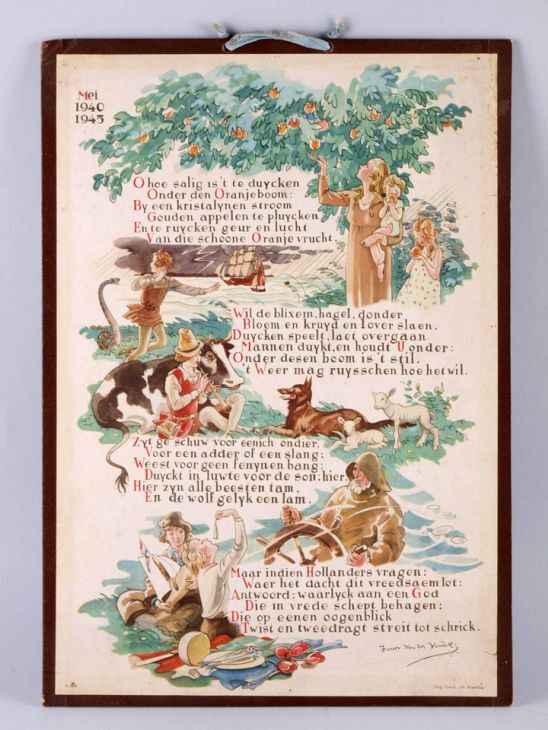 Mei
1940
1945
O hoe salig is 't te duycken
Onder den Oranjeboom:
By een kristalynen stroom
Gouden appelen te pluycken
En te ruycken geur en lucht
Van die schoone Oranje vrucht.
Wil de blixem, hagel, donder
Bloem en kruyd en lover slaen,
Duycken speelt, laet overgaan.
Mannen duykt, en houdt U onder:
Onder desen boom is 't stil.
't Weer mag ruysschen hoe het wil.
Zyt ge schuw voor eenich ondier,
Voor een adder of een slang;
Weest voor geen fenynen bang;
Duyckt in luwte voor de son; hier,
Hier zyn alle beesten tam,
En de wolf gelyk een lam.
Maar indien Hollanders vragen:
Waer het dacht dit vreedsaem lot:
Antwoord: waarlyck aan een God
Die in vrede schept behagen:
Die op eenen oogenblick
Twist en tweedragt streit tot schrick.